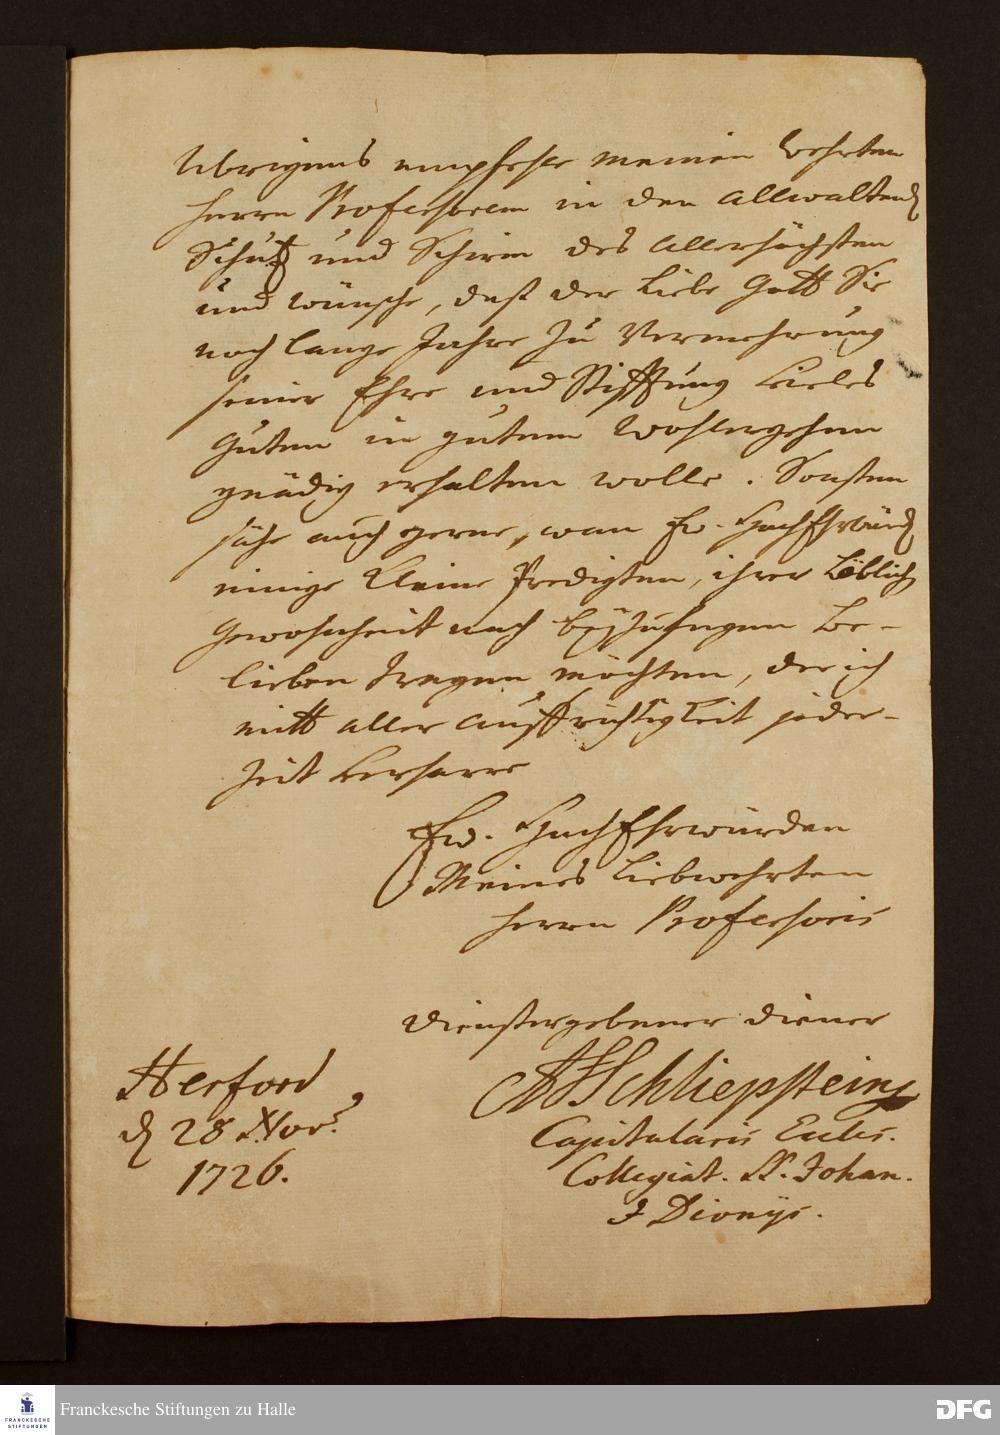 Ubrigens empfehle meinen wehrten
Herrn Professorem in den allwaltend
Schutz und Schirm des Allerhöchsten
und wünsche, daß der Liebe Gott Sie
noch lange Jahre zu Vermehrung
seiner Ehre und Stifftung vieles
Guten in gutem Wohlergehen
gnädig erhalten wolle. Sonsten
sähe auch gerne, wan Ew. HochEhrwürd
einige kleine Predigten, ihrer Löblich
Gewohnheit nach beyzufügen Be-
lieben tragen möchten, der ich
mitt aller Auffrichtigkeit jeder-
zeit verharre
Ew. HochEhrwürden
Meines Liebwehrten
Herrn Professoris
dienstergebener diener
Herford
d 28 Nov:
1726.
Schliepstein
Capitularis Eccles.
Collegiat. SS. Johan.
& Dionys.
Franckesche Stiftungen zu Halle
FRANCKESCHE
STIFTUNGEN
DFG